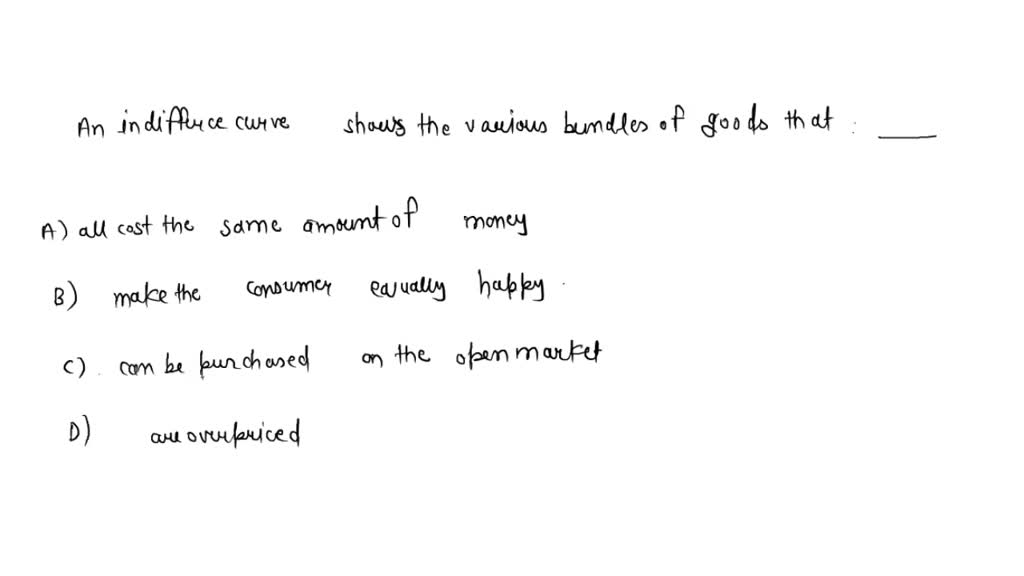 An indiffuce curve shows the various bundles of goods that : ____
A) all cost the same amount of money
B) make the consumer equally happy.
C) can be purchased on the open market
D) are overpriced